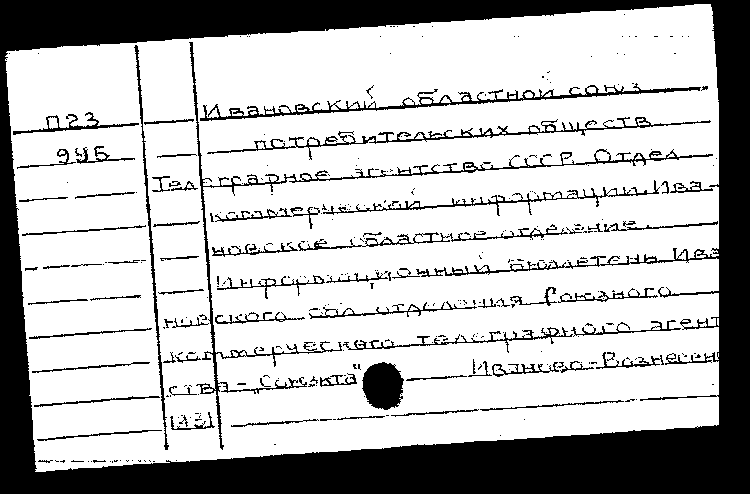 П23 Ивановский областной союз
9УБ потребительских обществ
Телеграфное агентство СССР. Отдел
коммерческой информации. Ива-
новское областное отделение.
Информационный бюллетень Ива
новского обл отделения Союзного
коммерческого телеграфного агент
ства - „Союзкта" Иваново-Вознесен
1931